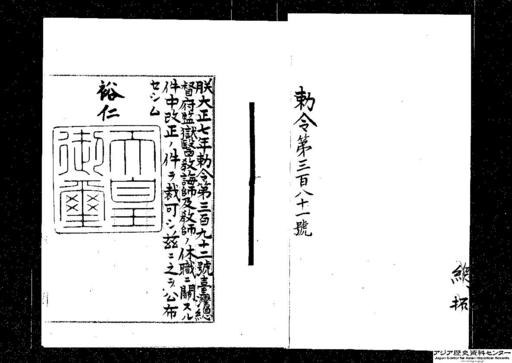 勅令第三百八十一號
總拓
朕大正七年勅令第三百九十二號臺灣總
督府監獄醫教誨師及教師ノ休職ニ關スル
件中改正ノ件ヲ裁可シ茲ニ之ヲ公布
セシム
裕仁
天皇
御璽
アジア歴史資料センター
Japan Center for Asian Historical Records